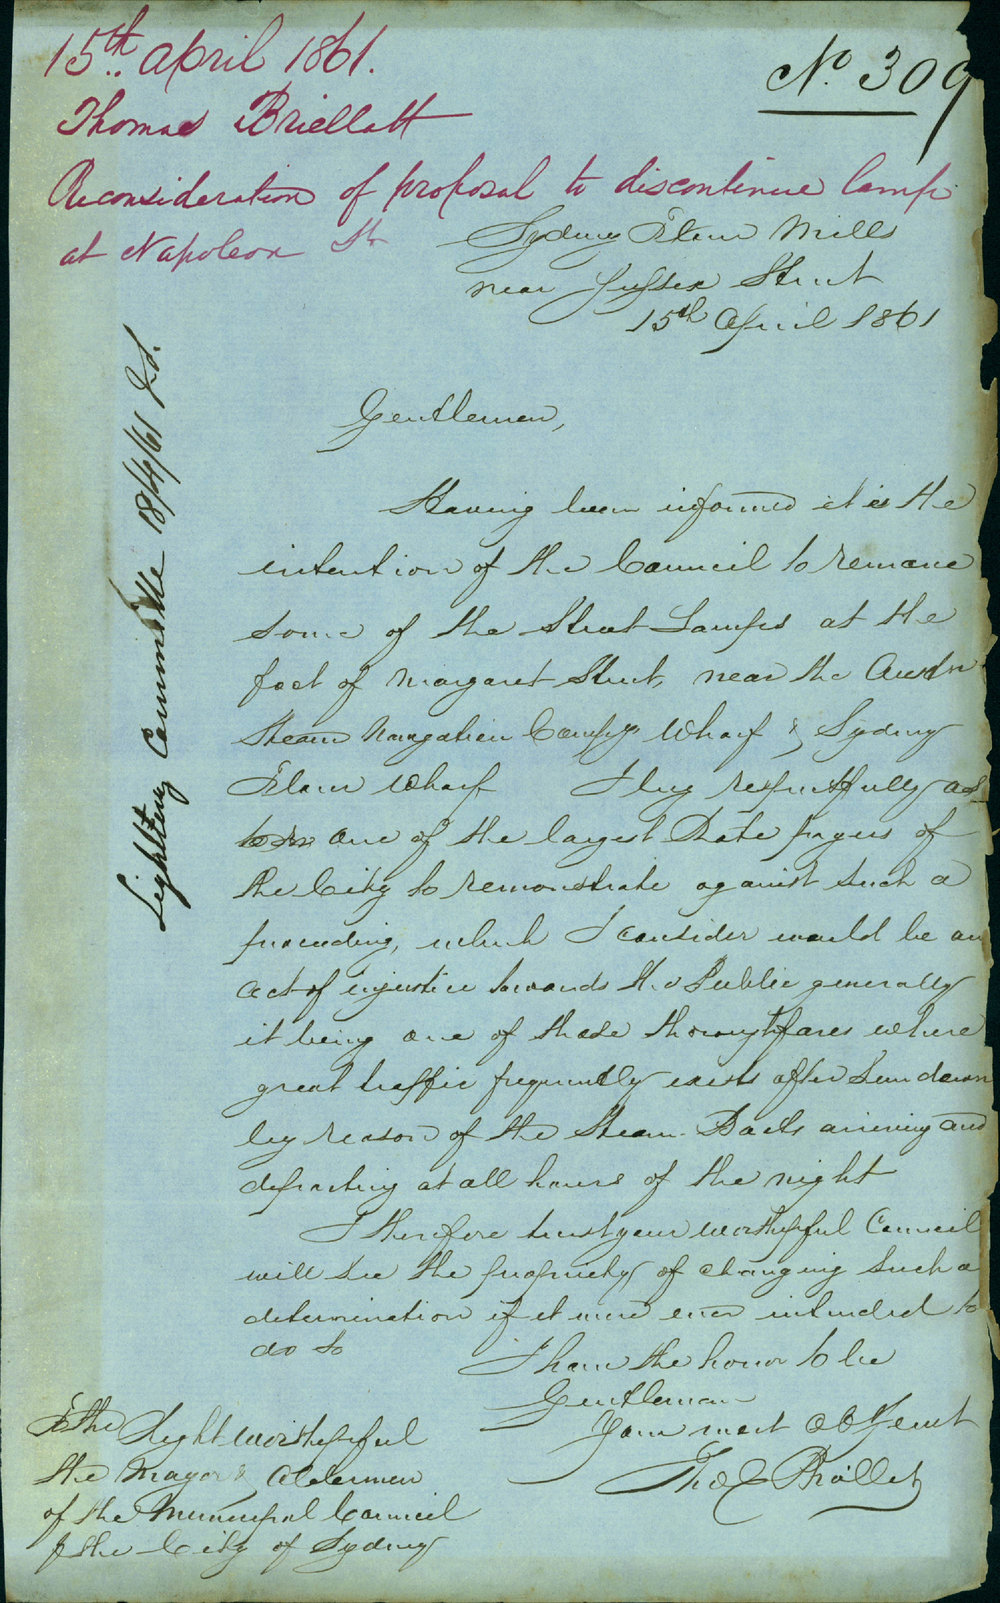 15th. April 1861.
No 309
Thomas Briellatt
Reconsideration of proposal to discontinue lamp
at Napoleon St
Sydney Flour Mills
near Sussex Street
15th April 1861
Lighting Committee 18/4/61
Gentlemen,
Having been informed it is the
intention of the Council to remove
some of the Street Lamps at the
foot of Margaret Street, near the Austn
Steam Navigation Compys Wharf & Sydney
Flour Wharf I beg respectfully as
one of the largest Rate payers of
the City to remonstrate against such a
proceeding, which I consider would be an
act of injustice towards the Public generally
it being one of those thoroughfares where
great traffic frequently exists after Sun down
by reason of the Steam Boats arriving and
departing at all hours of the night
I therefore trust your worshipful Council
will see the propriety of changing such a
determination if it were ever intended to
do so
I have the honor to be
Gentlemen
Your most obt Servt
Thos
To the Right Worshipful
the Mayor & Aldermen
of the Municipal Council
of the City of Sydney